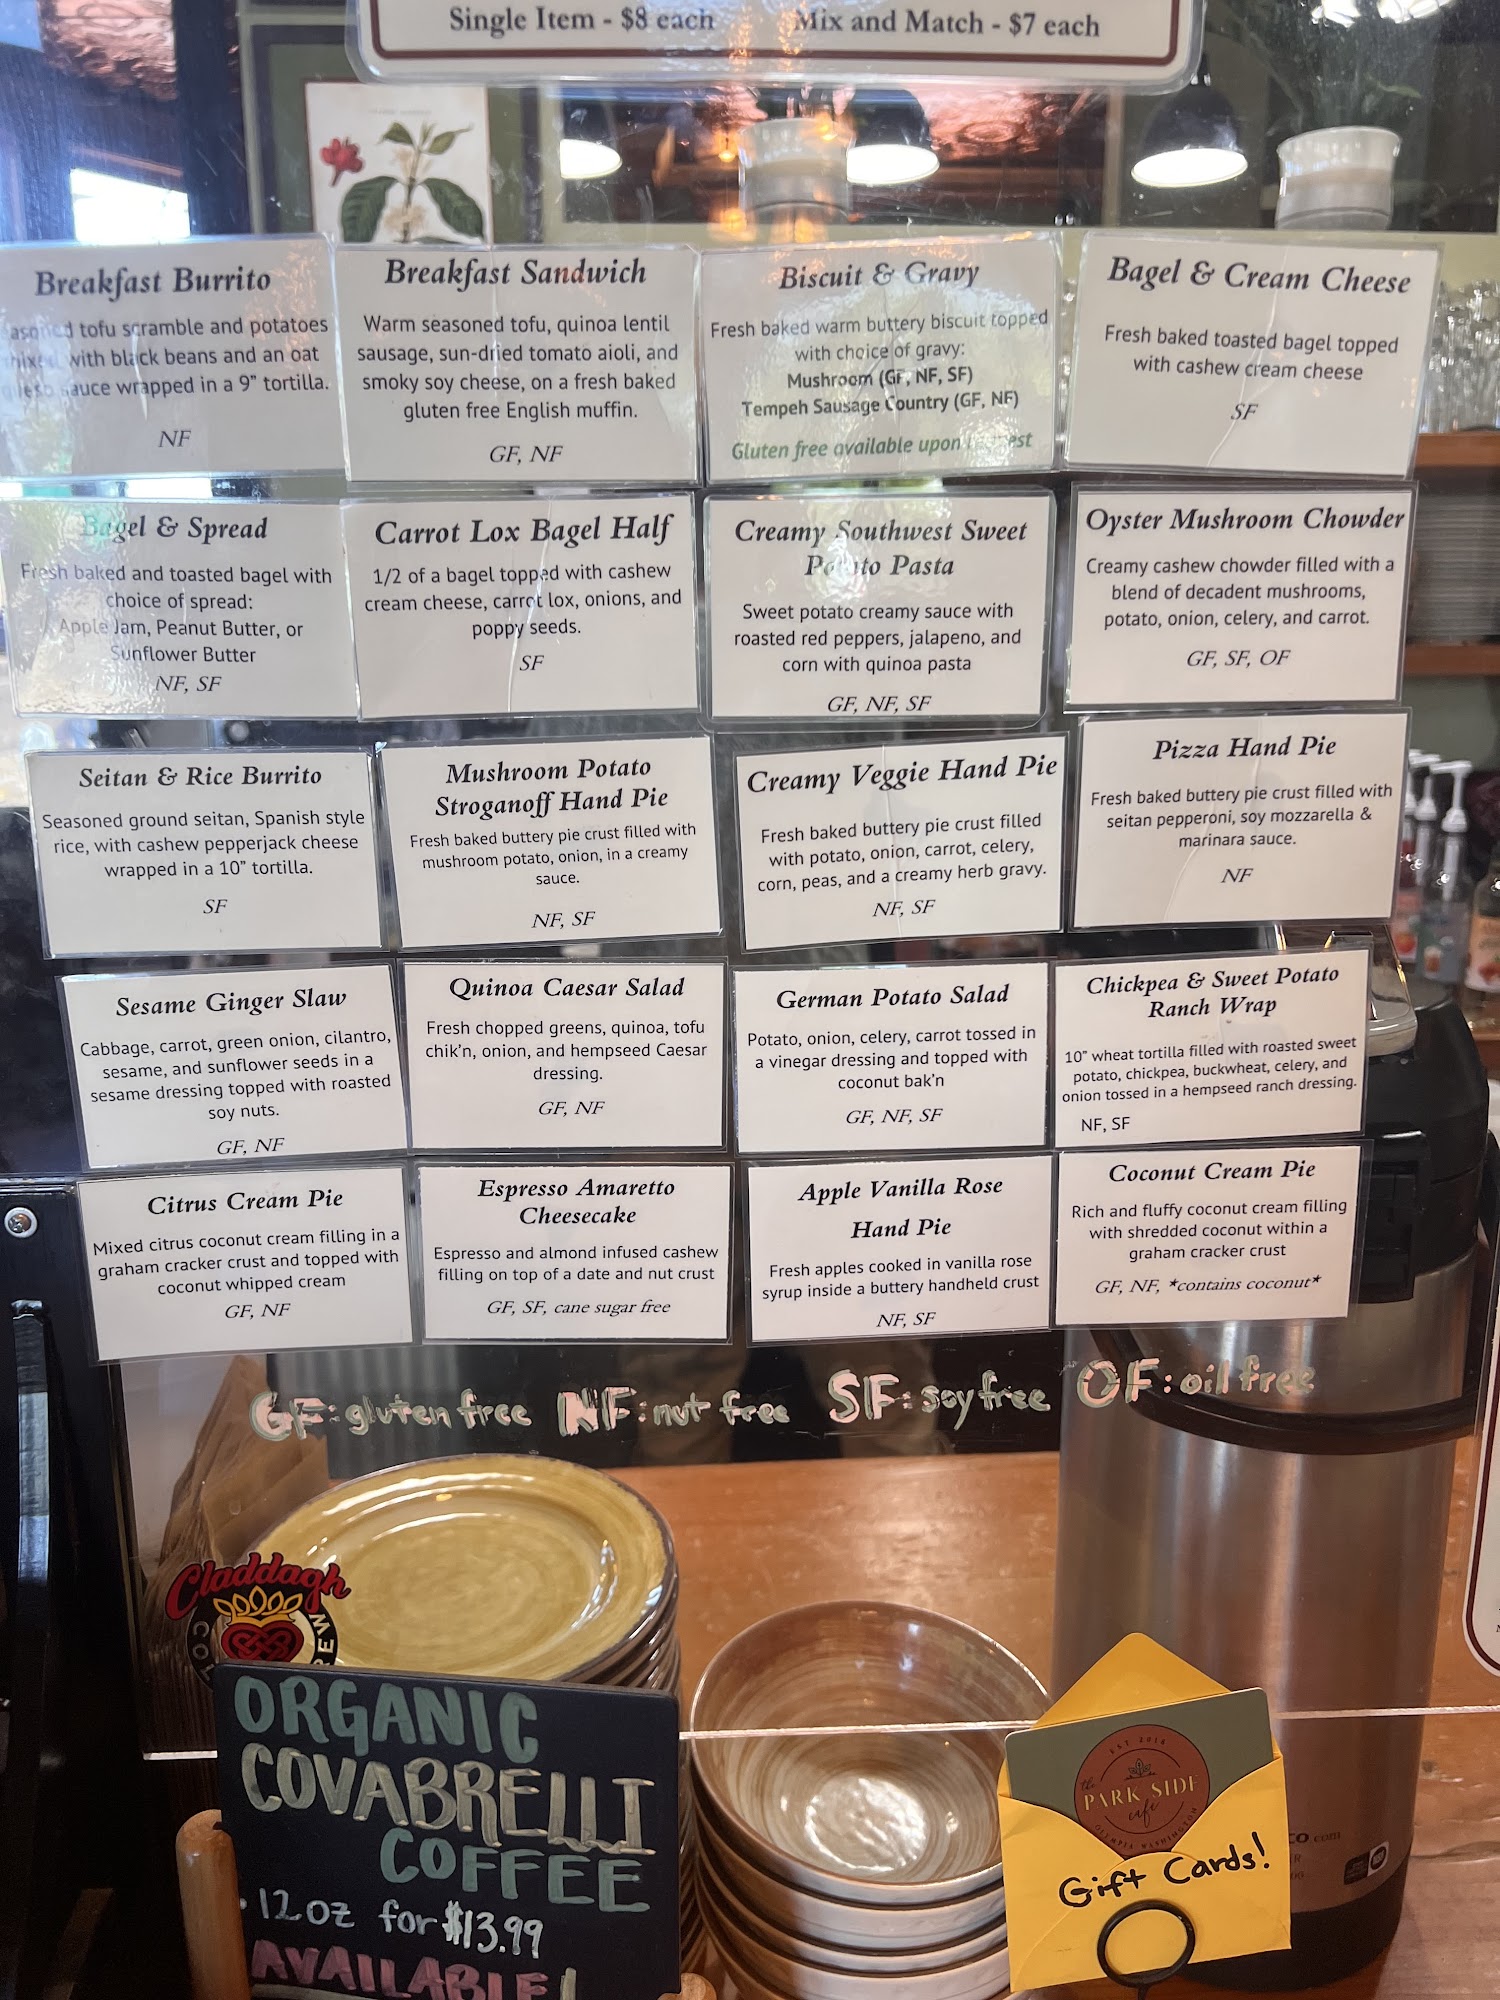 Single Item - $8 each
Mix and Match - $7 each
Breakfast Burrito
tofu scramble and potatoes
with black beans and an oat
sauce wrapped in a 9" tortilla.
NF
Breakfast Sandwich
Warm seasoned tofu, quinoa lentil
sausage, sun-dried tomato aioli, and
smoky soy cheese, on a fresh baked
gluten free English muffin.
GF, NF
Biscuit & Gravy
Fresh baked warm buttery biscuit topped
with choice of gravy:
Mushroom (GF, NF, SF)
Tempeh Sausage Country (GF, NF)
Gluten free available upon request
Bagel & Cream Cheese
Fresh baked toasted bagel topped
with cashew cream cheese
SF
Bagel & Spread
Fresh baked and toasted bagel with
choice of spread:
Apple Jam, Peanut Butter, or
Sunflower Butter
NF, SF
Carrot Lox Bagel Half
1/2 of a bagel topped with cashew
cream cheese, carrot lox, onions, and
poppy seeds.
SF
Creamy Southwest Sweet
Potato Pasta
Sweet potato creamy sauce with
roasted red peppers, jalapeno, and
corn with quinoa pasta
GF, NF, SF
Oyster Mushroom Chowder
Creamy cashew chowder filled with a
blend of decadent mushrooms,
potato, onion, celery, and carrot.
GF, SF, OF
Seitan & Rice Burrito
Seasoned ground seitan, Spanish style
rice, with cashew pepperjack cheese
wrapped in a 10" tortilla.
SF
Mushroom Potato
Stroganoff Hand Pie
Fresh baked buttery pie crust filled with
mushroom potato, onion, in a creamy
sauce.
NF, SF
Creamy Veggie Hand Pie
Fresh baked buttery pie crust filled
with potato, onion, carrot, celery,
corn, peas, and a creamy herb gravy.
NF, SF
Pizza Hand Pie
Fresh baked buttery pie crust filled with
seitan pepperoni, soy mozzarella &
marinara sauce.
NF
Sesame Ginger Slaw
Cabbage, carrot, green onion, cilantro,
sesame, and sunflower seeds in a
sesame dressing topped with roasted
soy nuts.
GF, NF
Quinoa Caesar Salad
Fresh chopped greens, quinoa, tofu
chik'n, onion, and hempseed Caesar
dressing.
GF, NF
German Potato Salad
Potato, onion, celery, carrot tossed in
a vinegar dressing and topped with
coconut bak'n
GF, NF, SF
Chickpea & Sweet Potato
Ranch Wrap
10" wheat tortilla filled with roasted sweet
potato, chickpea, buckwheat, celery, and
onion tossed in a hempseed ranch dressing.
NF, SF
Citrus Cream Pie
Mixed citrus coconut cream filling in a
graham cracker crust and topped with
coconut whipped cream
GF, NF
Espresso Amaretto
Cheesecake
Espresso and almond infused cashew
filling on top of a date and nut crust
GF, SF, cane sugar free
Apple Vanilla Rose
Hand Pie
Fresh apples cooked in vanilla rose
syrup inside a buttery handheld crust
NF, SF
Coconut Cream Pie
Rich and fluffy coconut cream filling
with shredded coconut within a
graham cracker crust
GF, NF, *contains coconut*
GF: gluten free NF: nut free SF: soy free OF: oil free
Claddagh
ORGANIC
COVABRELLI
COFFEE
· 12oz for $13.99
AVAILABLE!
EST 2018
the
PARK SIDE
café
OLYMPIA WASHINGTON
Gift Cards!